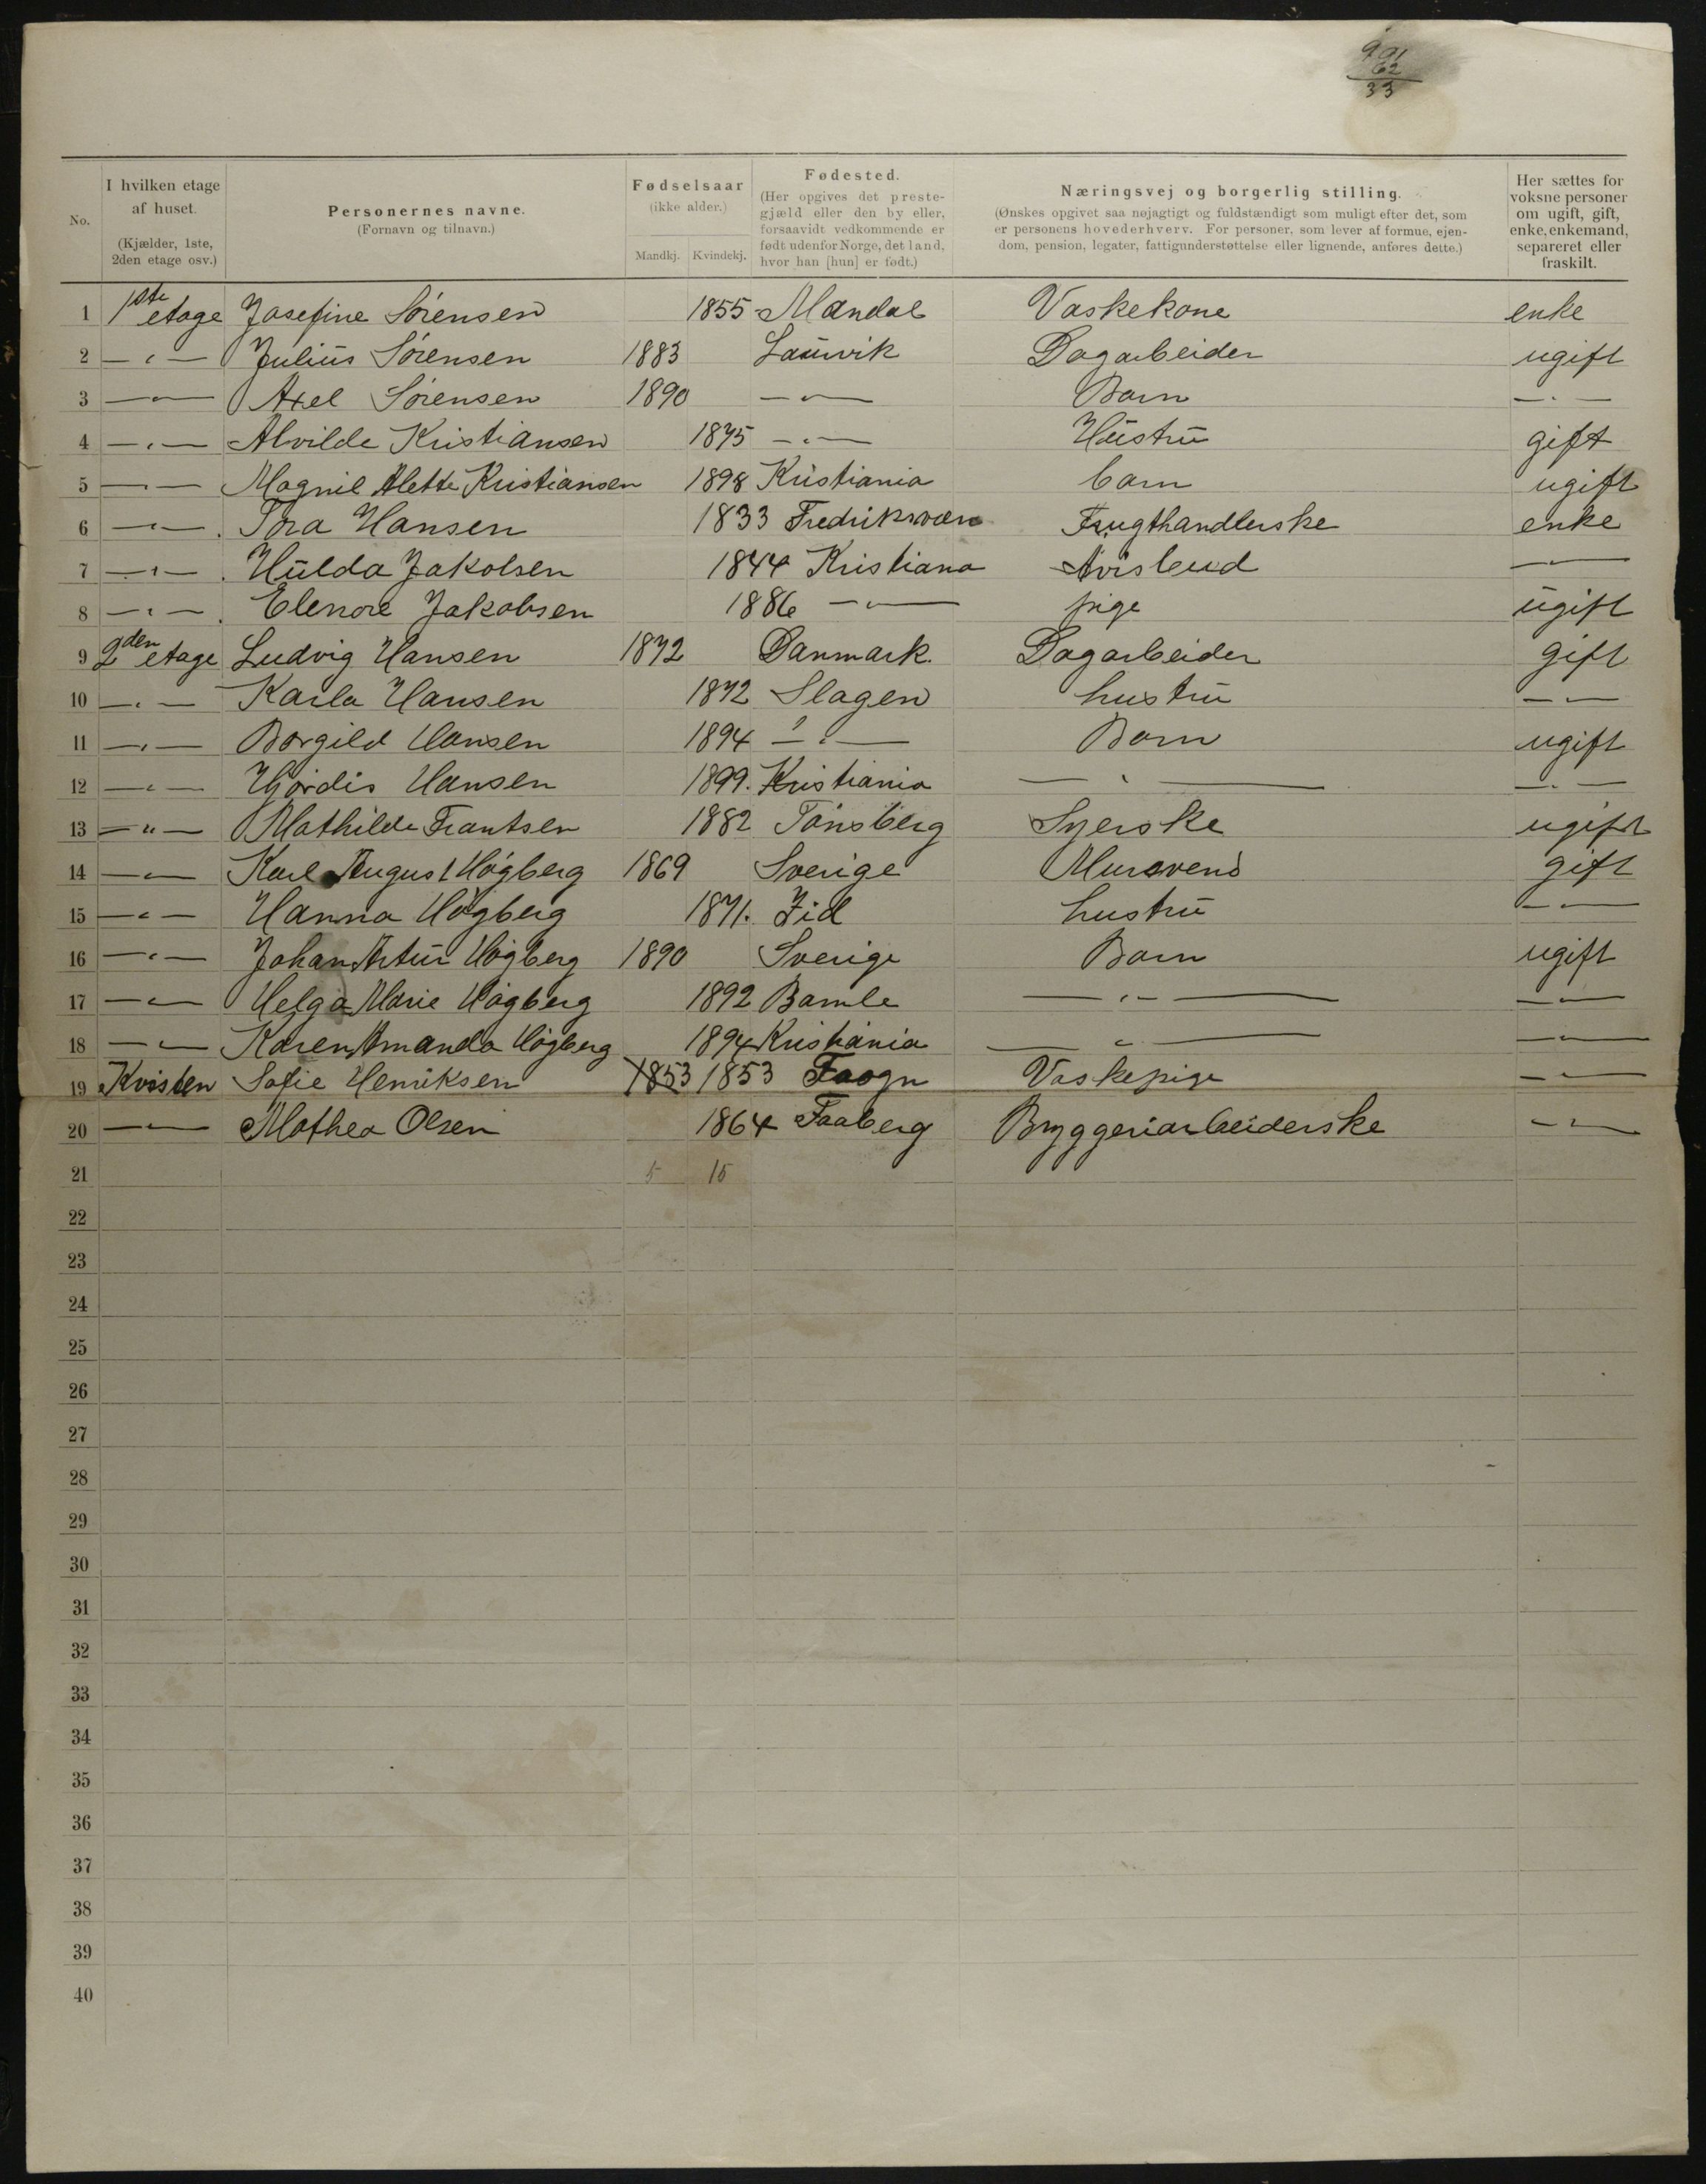 991
62
33
No. I hvilken etage af huset. (Kjælder, 1ste, 2den etage osv.) Personernes navne. (Fornavn og tilnavn.) Fødselsaar (ikke alder.) Mandkj. Kvindekj. Fødested. (Her opgives det prestegjæld eller den by eller, forsaavidt vedkommende er født udenfor Norge, det land, hvor han [hun] er født.) Næringsvej og borgerlig stilling. (Ønskes opgivet saa nøjagtigt og fuldstændigt som muligt efter det, som er personens hovederhverv. For personer, som lever af formue, ejendom, pension, legater, fattigunderstøttelse eller lignende, anføres dette.) Her sættes for voksne personer om ugift, gift, enke, enkemand, separeret eller fraskilt.
1 1ste etage Josefine Sörensen 1855 Mandal Vaskekone enke
2 — " — Julius Sörensen 1883 Laurvik Dagarbeider ugift
3 — " — Axel Sörensen 1890 — " — Barn — " —
4 — " — Alvilde Kristiansen 1875 — " — Hustru gift
5 — " — Magnil Alette Kristiansen 1898 Kristiania barn ugift
6 — " — Tora Hansen 1833 Fredriksværn Frugthandlerske enke
7 — " — Hulda Jakobsen 1844 Kristiana Avisbud — " —
8 — " — Elenore Jakobsen 1886 — " — pige ugift
9 2den etage Ludvig Hansen 1872 Danmark. Dagarbeider gift
10 — " — Karla Hansen 1872 Slagen hustru — " —
11 — " — Borgild Hansen 1894 — " — Barn ugift
12 — " — Hjördis Hansen 1899. Kristiania — " — — " —
13 — " — Mathilde Frantsen 1882 Tönsberg Syerske ugift
14 — " — Karl August Högberg 1869 Sverige Mursvend gift
15 — " — Hanna Högberg 1871. Zid hustru — " —
16 — " — Johan Artur Högberg 1890 Sverige Barn ugift
17 — " — Helga Marie Högberg 1892 Bamle — " — — " —
18 — " — Karen Amanda Högberg 1894 Kristiania — " — — " —
19 Kvisten Sofie Henriksen 1853 1853 Fraogn Vaskepige — " —
20 — " — Mathea Olsen 1864 Faaberg Bryggeriarbeiderske — " —
21 5 15
22
23
24
25
26
27
28
29
30
31
32
33
34
35
36
37
38
39
40